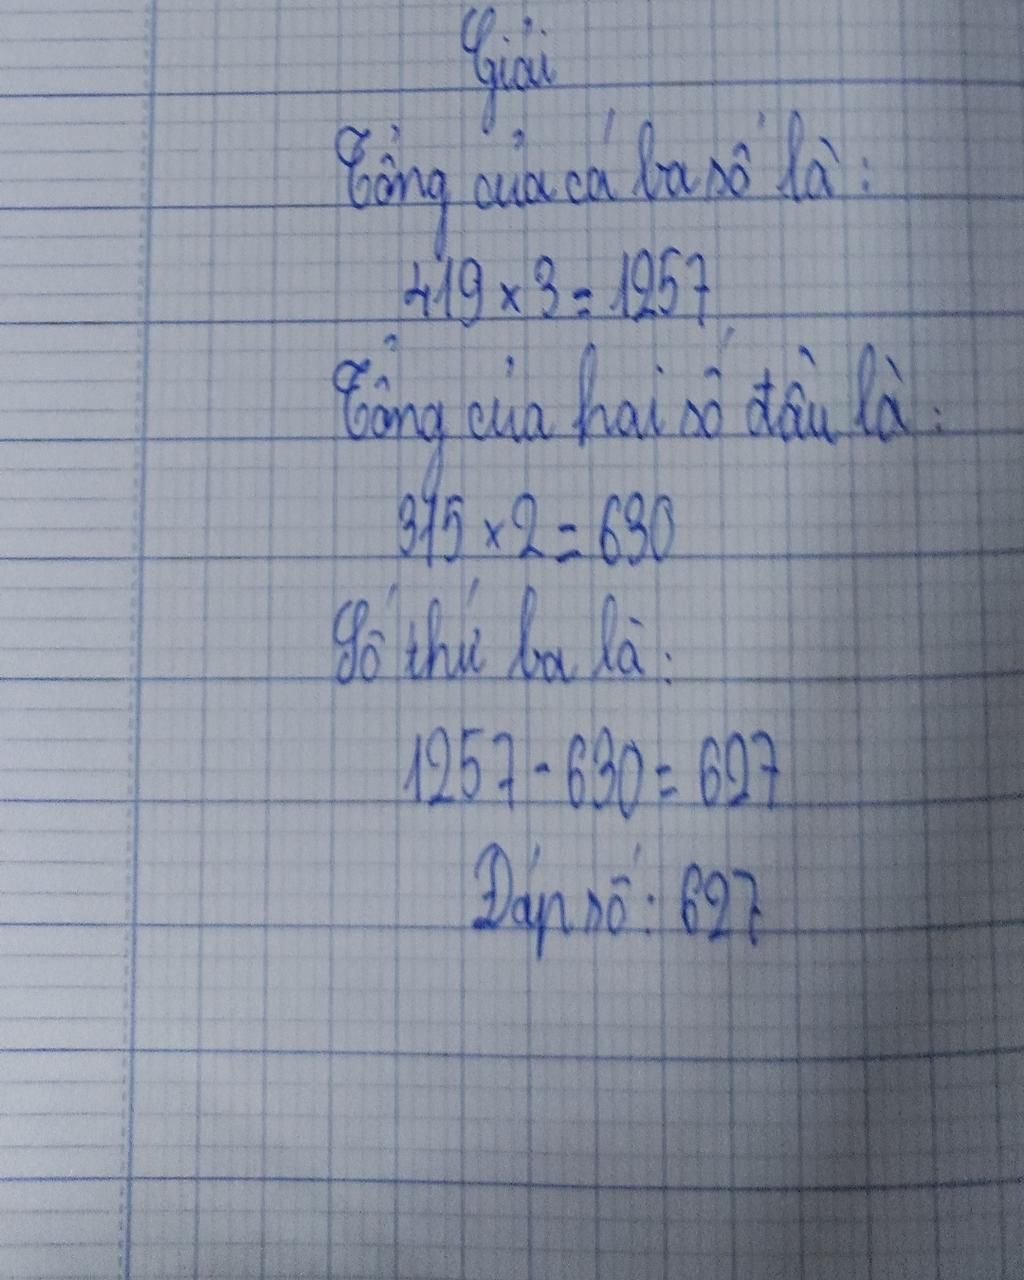 Giải
Tổng của cá ba số là:
419 × 3 = 1257
Tổng của hai số đầu là:
315 × 2 = 630
Số thứ ba là:
1257 - 630 = 627
Đáp số: 627